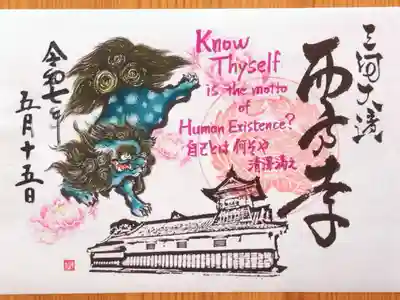 三河大濱
西方寺
Know
Thyself
is the motto
of
Human Existence?
自己とは 何ぞや
清澤満之
令和七年
五月十五日